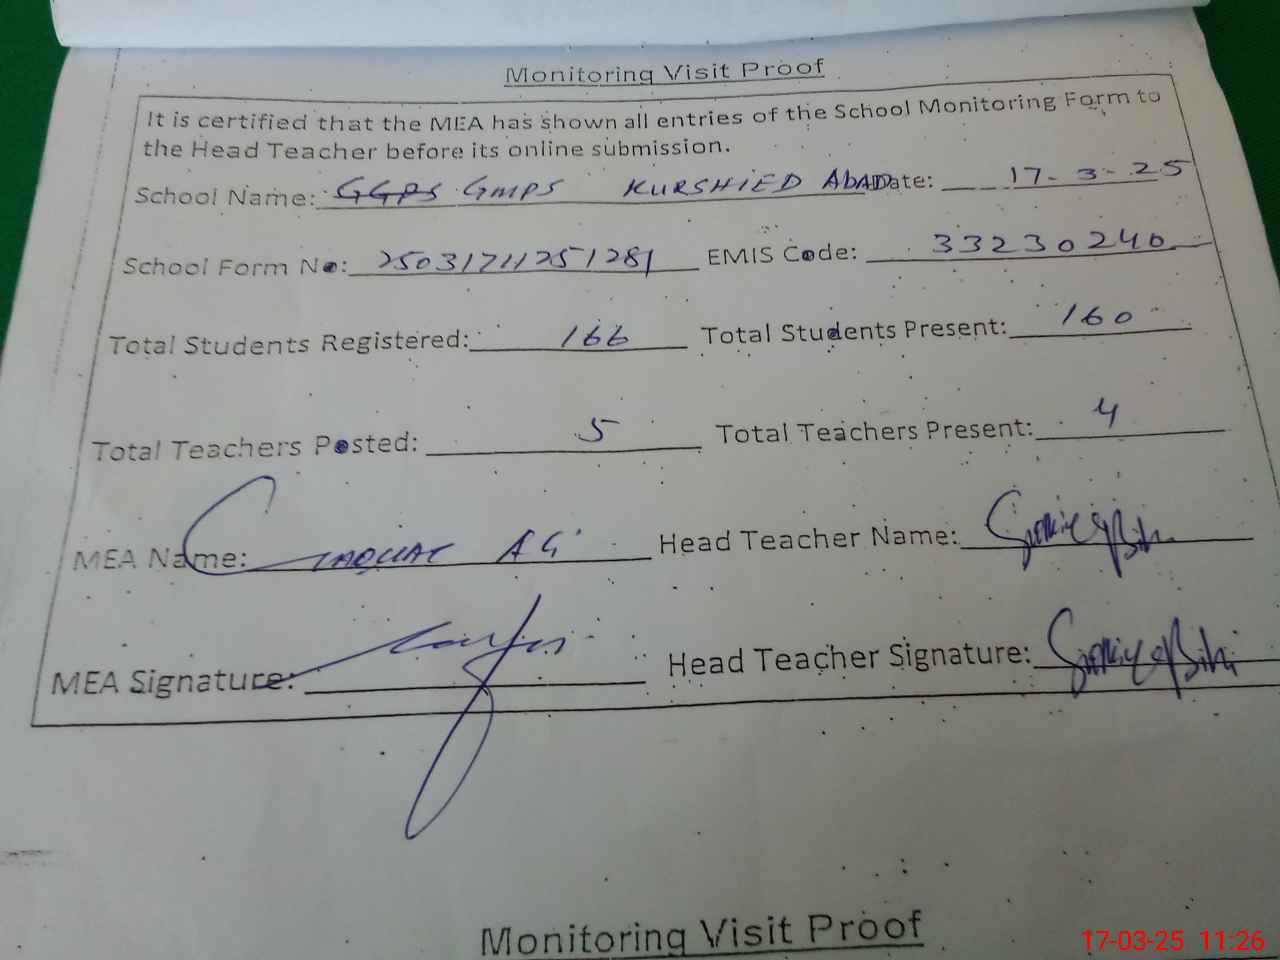 Monitoring Visit Proof
It is certified that the MEA has shown all entries of the School Monitoring Form to
the Head Teacher before its online submission.
School Name: GGPS GMPS KURSHIED ABAD Date: 17-3-25
School Form No: 25031711251281 EMIS Code: 33230240
Total Students Registered: 166 Total Students Present: 160
Total Teachers Posted: 5 Total Teachers Present: 4
MEA Name: Head Teacher Name:
MEA Signature: Head Teacher Signature:
Monitoring Visit Proof
17-03-25 11:26